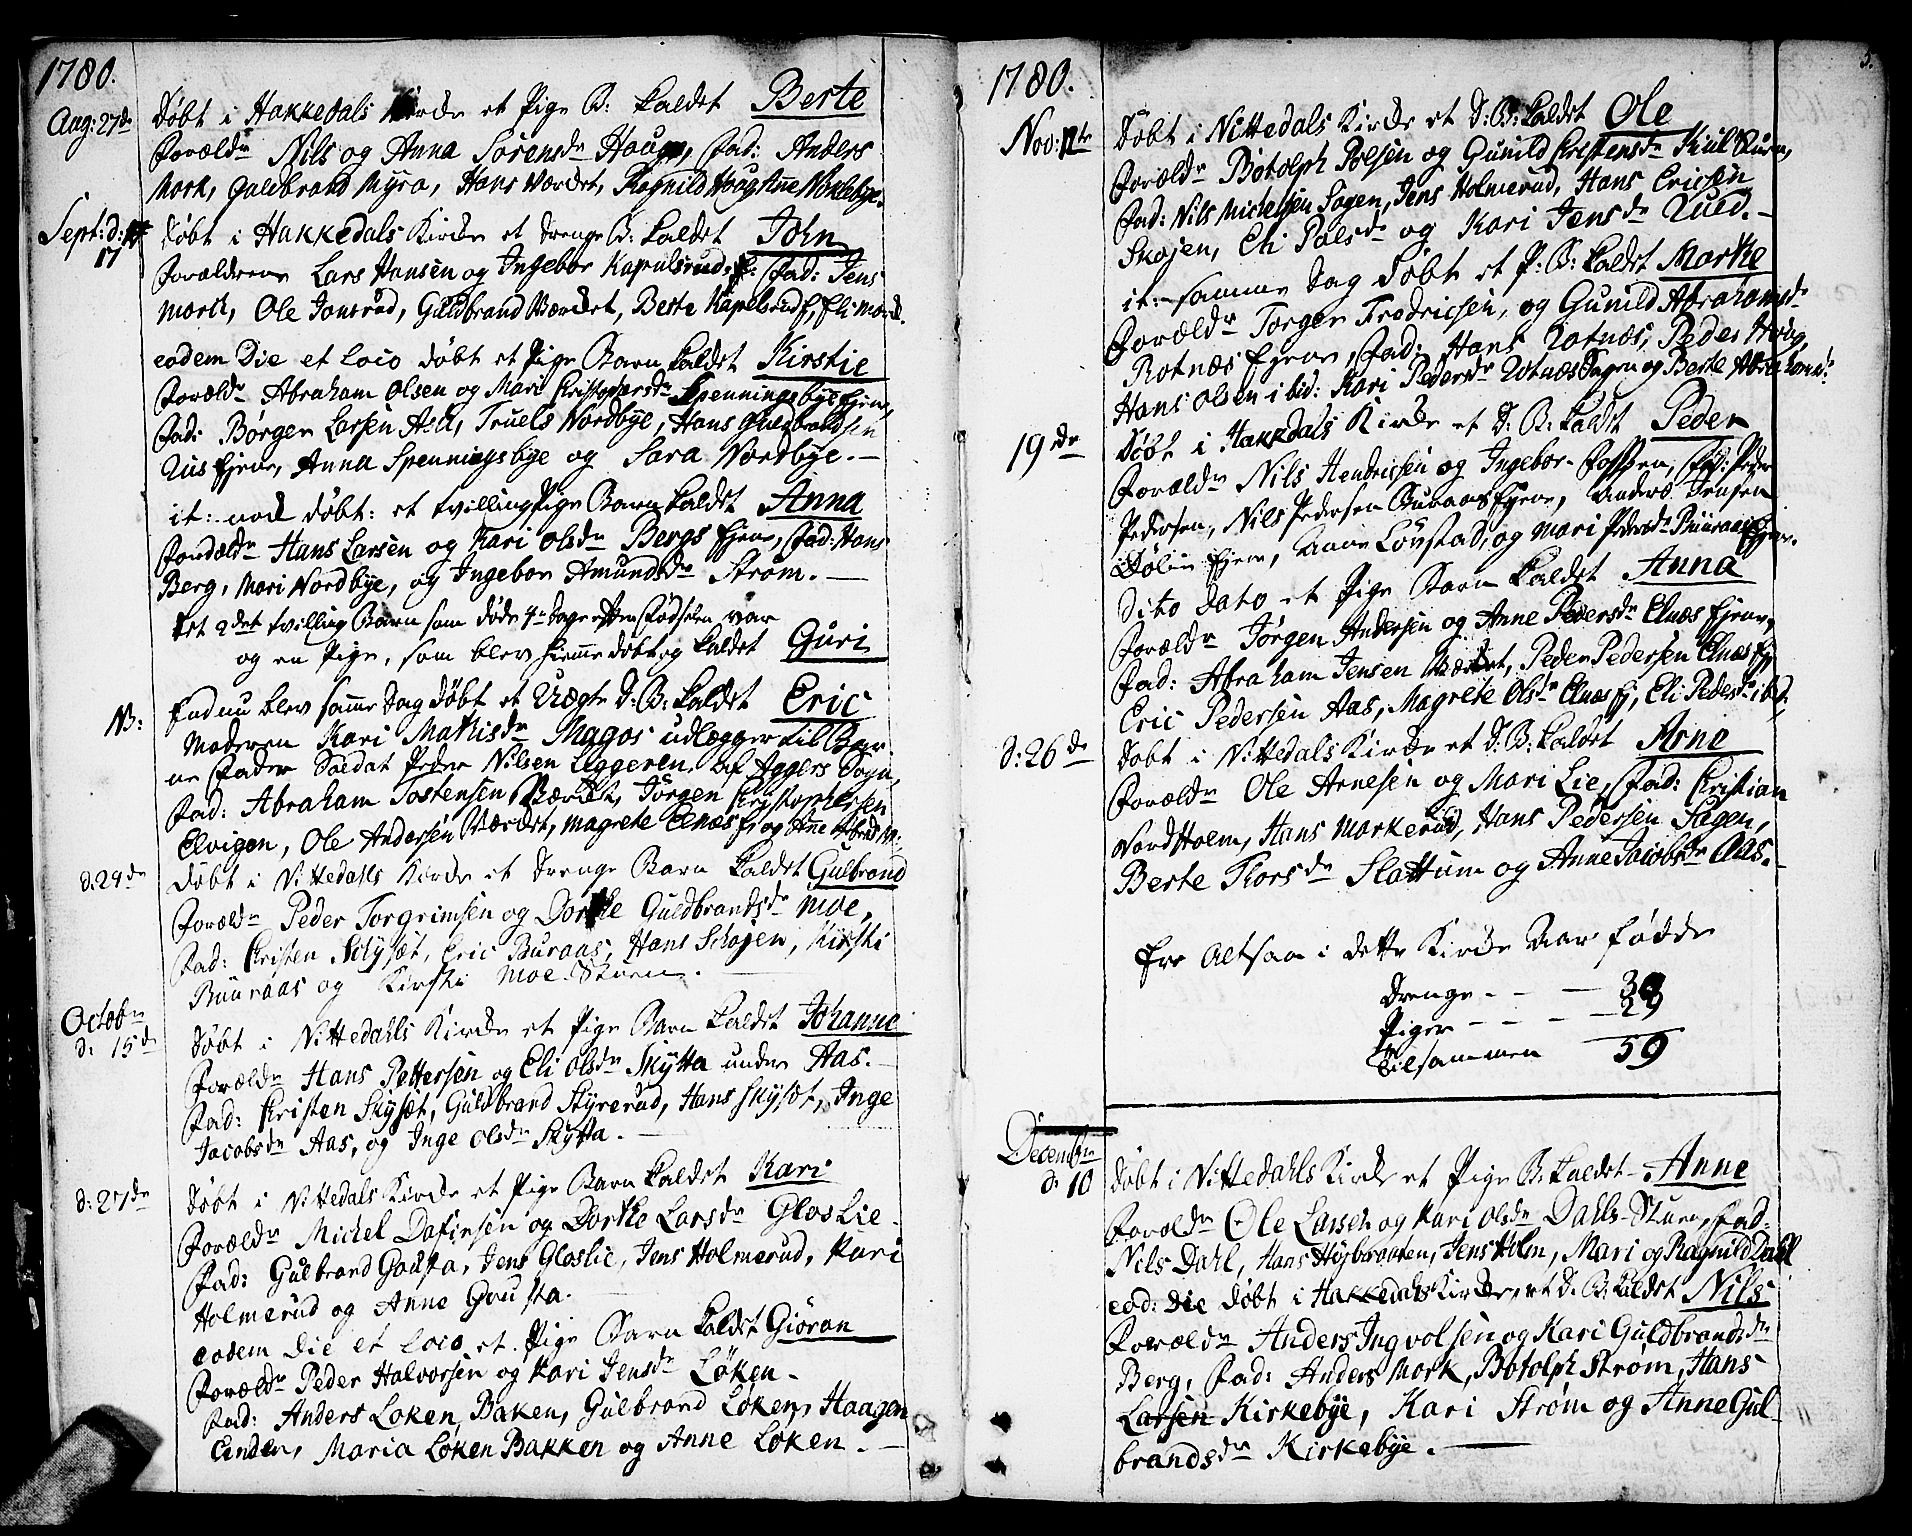 1780.
Aug: 27de
Døbt i Hakkedals Kirke et Pige B: kaldet Berte
Forældr Nils og Anna Sørensdr Haugn, Fad: Anders
Mork, Guldbrand Myra, Hans Værket, Ragnild Haug Anne
Sept: d: 17
Døbt i Hakkedals Kirke et Drenge B: kaldet John
Forældrene Lars Hansen og Ingebor Kapulsrud, Fad: Jens
Mork, Ole Jonsrud, Guldbrand Værket, Berte Kapelsrud, Eli Mork.
eodem Die et Loco døbt et Pige Barn kaldet Kirstie
Forældr Abraham Olsen og Mari Christophersdr Spenningsbye Ejere,
Fad: Børger Larsen Aså, Truels Nordbye, Hans Guldbrandsen
Ruus Ejere, Anna Spenningsbye og Sara Nordbye.
it: nok døbt: et tvilling Pige Barn kaldet Anna
Forældr Hans Larsen og Kari Olsdr Bergs Ejere, Fad: Hans
Berg, Mari Nordbye, og Ingebor Amundsdr Strøm.
Det 2det tvilling Barn som døde 4re Dage efter Fødselen var
og en Pige, som blev hiemme døbt og kaldet Guri
NB:
Endnu blev samme Dag døbt et Uægte D: B: kaldet Eric
Moderen Kari Mathisdr Magos udlægger til Bar-
ne Fader Soldat Peder Nilsen Leggeren af Aggers Sogn,
Fad: Abraham Tostensen Værket, Jørgen Christophersen
Elvigen, Ole Andersen Værket, Magrete Elnæs Ej og Anne
d: 24de
Døbt i Nittedalls Kirke et Drenge Barn kaldet Gulbrand
Forældr Peder Torgrimsen og Dorthe Guldbrandsdr Moe,
Fad: Christen Skysæt, Eric Buraas, Hans Schøjen, Kirsti
Buuraas og Kirsti Moe-Stuen.
Octobr
d: 15de
Døbt i Nittedahls Kirke et Pige Barn kaldet Johanne
Forældr Hans Pettersen og Eli Olsdr Skytta under Aas.
Fad: Christen Skysæt, Guldbrand Styrerud, Hans Skysæt, Inge
Jacobsdr Aas, og Inge Olsdr Skytta.
d: 27de
Døbt i Nittedals Kirke et Pige Barn kaldet Kari
Forældr Michel Dafinsen og Dorthe Larsdr Gloslie
Fad: Gulbrand Gousta, Jens Gloslie, Jens Holmerud, Kari
Holmerud og Anne Gousta.
eodem Die et Loco et Pige Barn kaldet Giøran
Forældr Peder Halvorsen og Kari Jensdr Løken.
Fad: Anders Løken, Baken, Gulbrand Løken, Haagen
Enden, Maria Løken Bakken og Anne Løken.
5.
1780.
Nov: 12te
Døbt i Nittedals Kirke et D: B: kaldet Ole
Forældr Botolph Polsen og Gunild Christensdr Kiulstuen,
Fad: Nils Michelsen Sagen, Jens Holmerud, Hans Ericsen
Skøjen, Eli Polsdr og Kari Jensdr Rud.
it: samme Dag døbt et P: B: kaldet Marthe
Forældr Torger Fredricsen, og Gunild Abrahamsdr
Rotnæs Ejere, Fad: Hans Rotnæs, Peder Houg,
Hans Olsen ibid: Kari Pedersdr Rotnæs Hagen og Berte Abrahamsdr
19de
Døbt i Hakkedals Kirke et D: B: kaldet Peder
Forældr Nils Hendricsen og Ingebor Fossen, Fad: Peder
Pedersen, Nils Pedersen Buraas Ejere, Anders Jensen
Dølin Ejere, Aane Løvstad, og Mari Pedersdr Buuraas Ejere.
Dito Dato et Pige Barn kaldet Anna
Forældr Jørgen Andersen og Anne Pedersdr Elnæs Ejere,
Fad: Abraham Jensen Værket, Peder Pedersen Elnæs Ej
Eric Pedersen Aas, Magrete Olsdr Elnæs Ej, Eli Pedersdr ibid.
d: 26de
Døbt i Nittedals Kirke et D: B: kaldet Arne
Forældr Ole Arnesen og Mari Lie, Fad: Christian
Nordholm, Hans Markerud, Hans Pedersen Sagen,
Berte Thorsdr Slattum og Anne Jacobsdr Aas.
Ere Altsaa i dette Kirke Aar fødde
Drenge - - 30
Piger - - - 29
Tilsammen 59
Decembr
d: 10
Døbt i Nittedahls Kirke et Pige B: kaldet Anne
Forældr Ole Larsen og Kari Olsdr Dahls-Stuen, Fad:
Nils Dahl, Hans Høybraaten, Jens Holm, Mari og Ragnild Dahl
eod: Die døbt i Hakkedals Kirke, et D: B: kaldet Nils
Forældr Anders Ingvolsen og Kari Guldbrandsdr
Berg, Fad: Anders Mork, Botolph Strøm, Hans
Larsen Kirkebye, Kari Strøm og Anne Gul-
brandsdr Kirkebye.